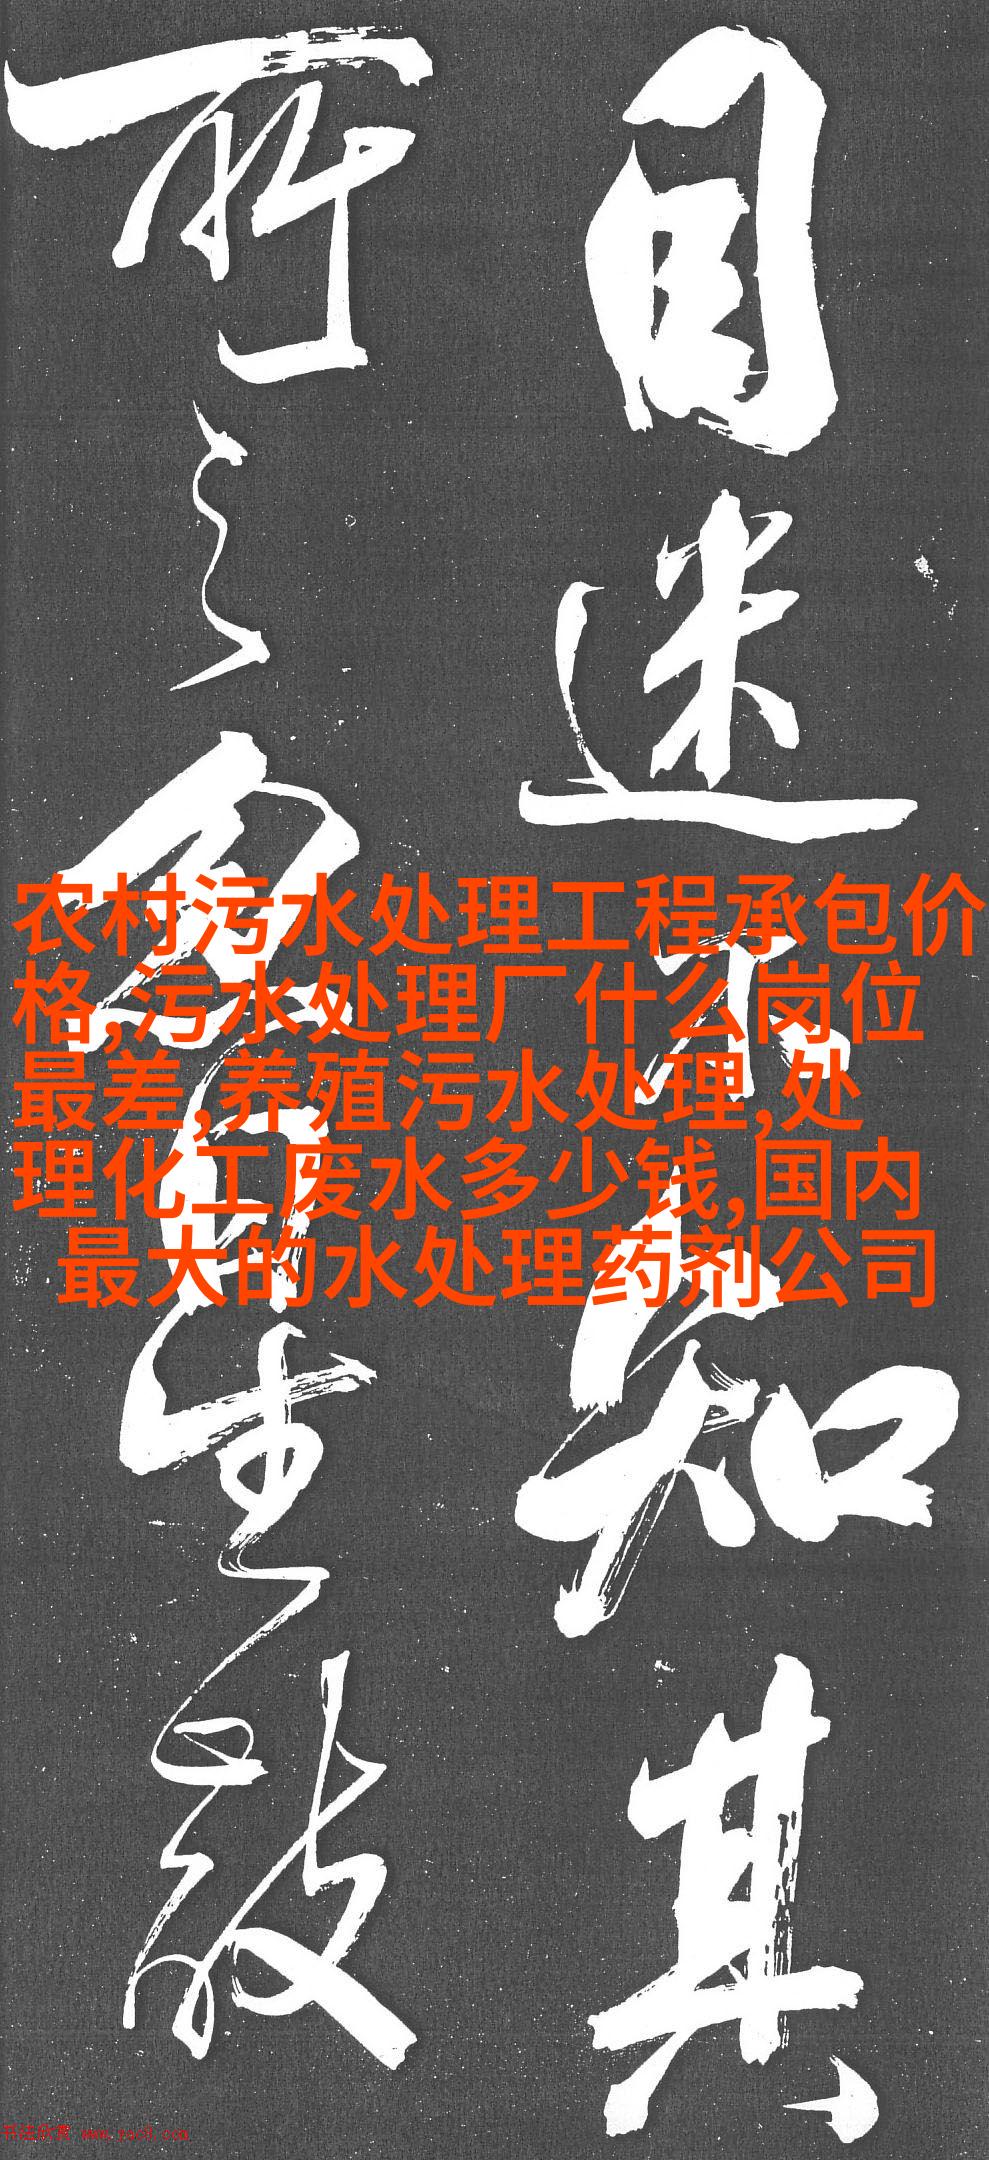 目迷不知其
所之
生
农村污水处理工程承包价
格,污水处理厂什么岗位
最差,养殖污水处理,处
理化工废水多少钱,国内
最大的水处理药剂公司